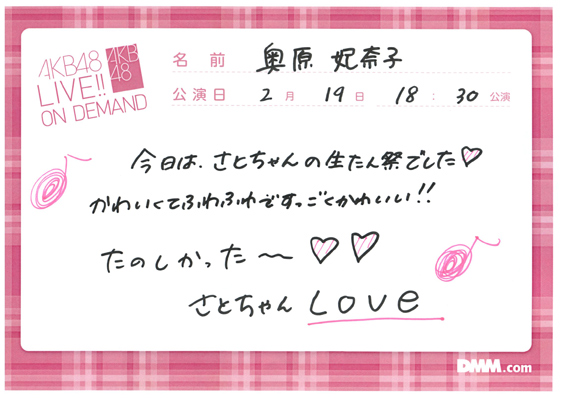 AKB48
LIVE!!
ON DEMAND
AKB
48
名前 奥原 妃奈子
公演日 2月 19日 18:30公演
今日は、さとちゃんの生たん祭でした♡
かわいくてふわふわですっごくかわいい!!
たのしかった〜♡♡
さとちゃん Love
DMM.com